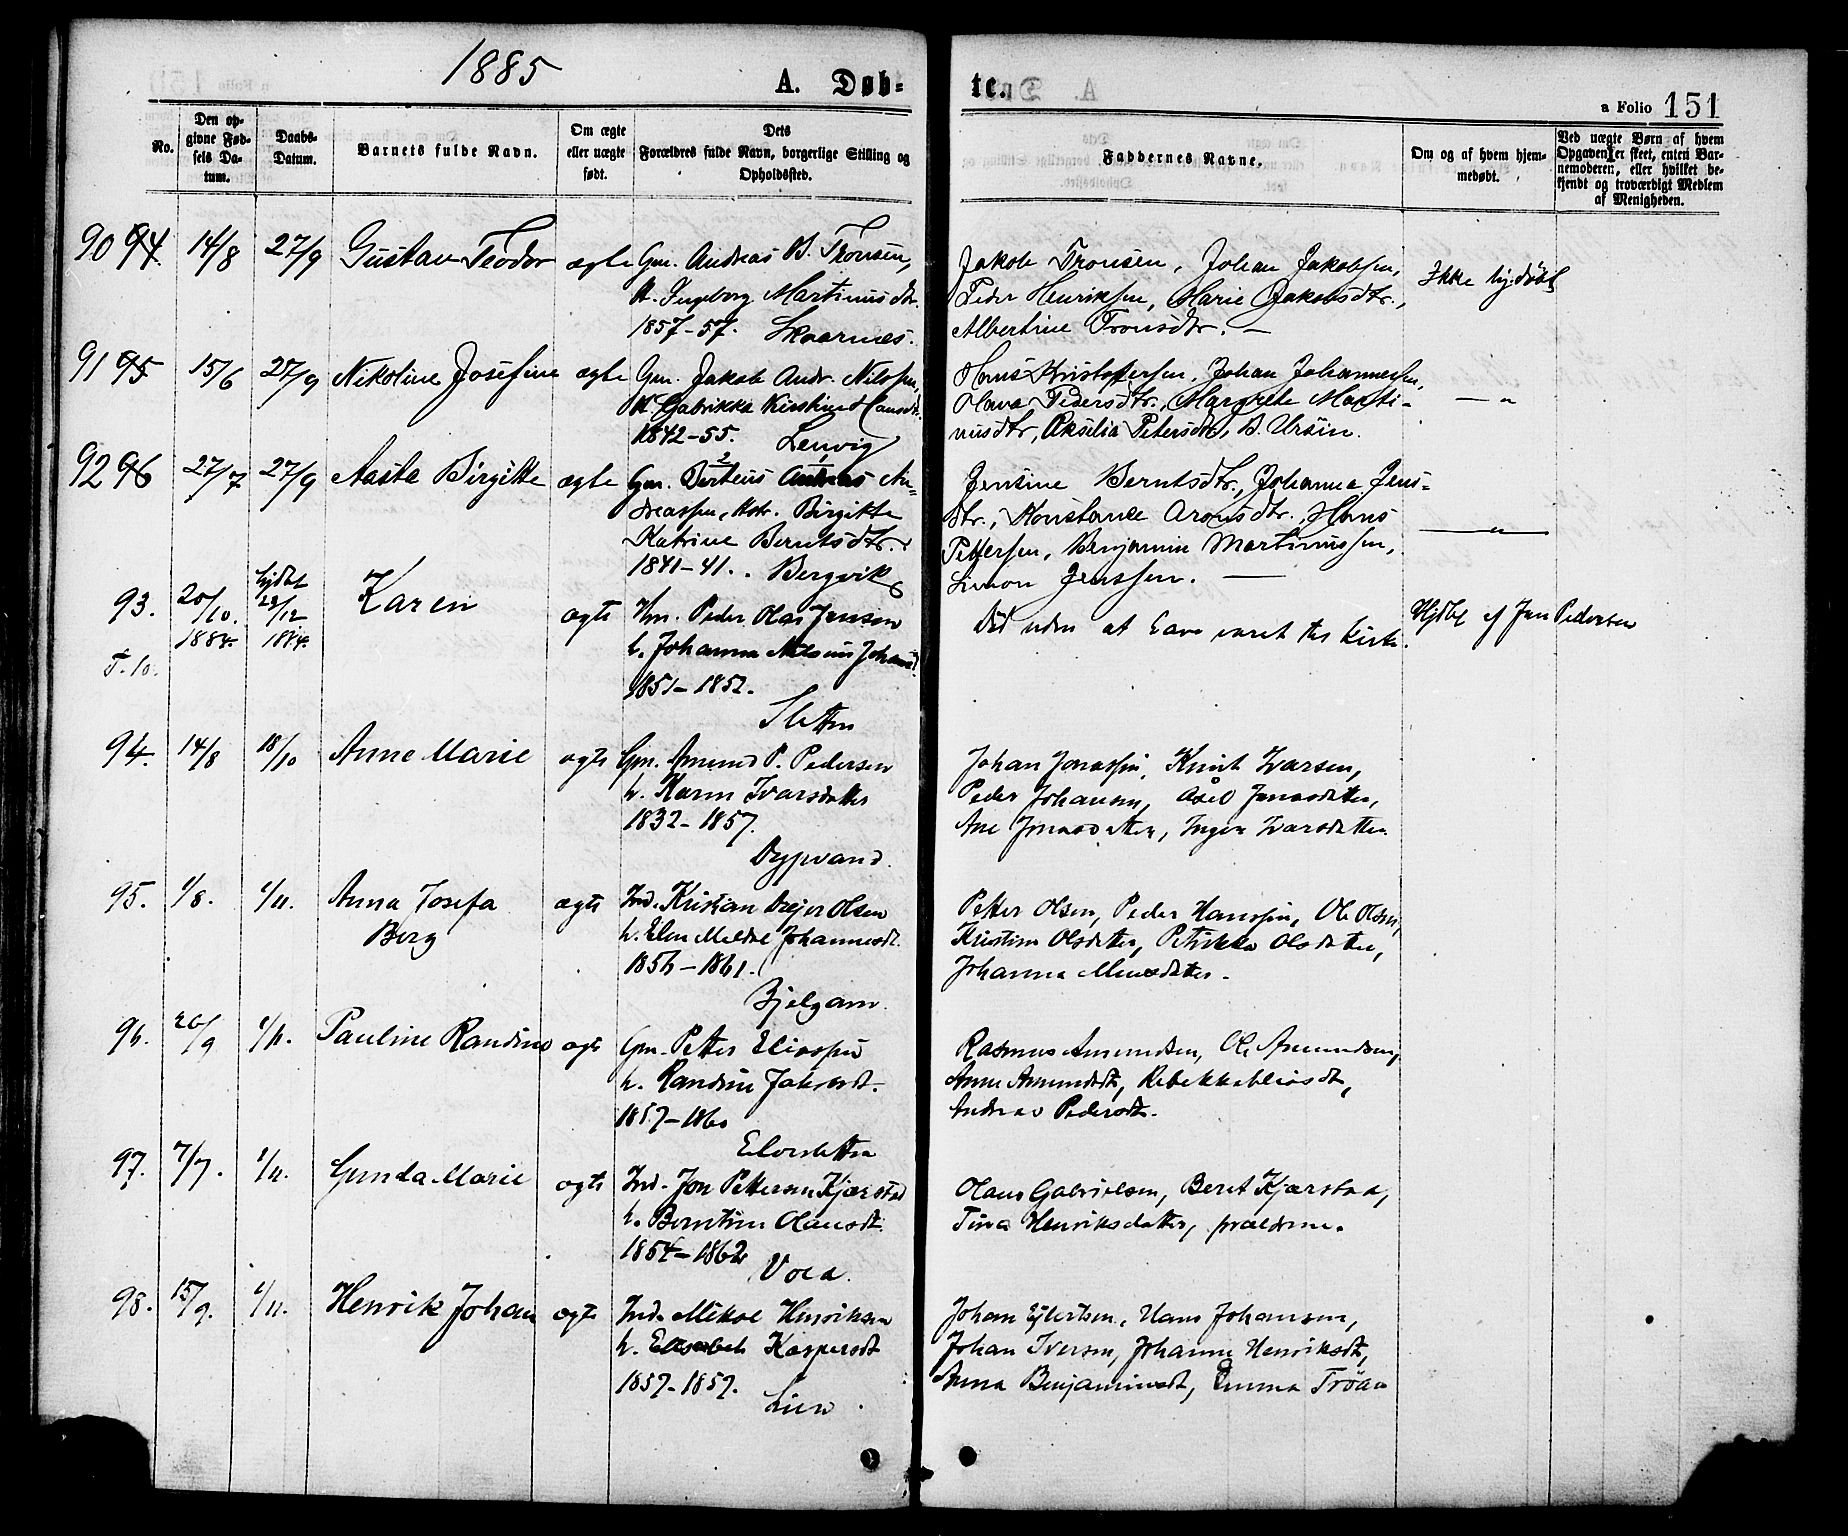 1885
A. Døb-
te.
a Folio 151
No.
Den op-
givne Fød-
sels Da-
tum.
Daabs-
Datum.
Barnets fulde Navn.
Om ægte
eller uægte
født.
Dets
Forældres fulde Navn, borgerlige Stilling og
Opholdssted.
Faddernes Navne.
Om og af hvem hjem-
medøbt.
Ved uægte Børn af hvem
Opgaven er skeet, enten Bar-
nemoderen, eller hvilket be-
kjendt og troværdigt Medlem
af Menigheden.
90 94 14/8 27/9 Gustav Teodor ægte Gm. Andreas B. Tronsen,
H. Ingeborg Martinusdtr.
1857-57. Skaarnes.
Jakob Tronsen, Johan Jakobsen,
Peder Henriksen, Marie Jakobsdtr.,
Albertine Tronsdtr. —
Ikke hj.døbt
91 95 15/6 27/9 Nikoline Josefine ægte Gm. Jakob Andr. Nilssen,
H. Gabrikka Kirstine Hansdtr.
1842-55. Lenvig
Hans Kristoffersen, Johan Johannessen,
Olava Pedersdtr., Margrete Marti-
nusdtr, Akselia Petersdtr, B. Ursin.
— " —
92 96 27/7 27/9 Aasta Birgitte ægte Gm. Dorteus Andreas An-
dreassen, Hstr. Birgitte
Katrine Berntsdtr.
1841-41. Bergvik
Jensine Berntsdtr., Johanna Jens-
dtr., Konstance Aronsdtr., Hans
Pettersen, Benjamin Martinussen,
Simon Jenssen. —
— " —
93. 20/10. 1884. hjdbt 28/12 1884. Karen ægte Hm. Peder Olai Jensen
h. Johanna Johansd.
1851-1852.
Sletten
T. 10.
Død uden at have været til Kirke.
Hjdbt af Jens Pedersen
94. 14/8 18/10 Anne Marie ægte Gm. Amund P. Pedersen
h. Karen Ivarsdatter
1832-1857.
Dypvand.
Johan Jonassen, Knut Ivarsen,
Peder Johansen, Axel Jonasdatter,
Ane Jonasdatter, Inger Ivarsdatter
95. 1/8. 1/11. Anna Josefa
Berg
ægte Ind. Kristian Drejer Olsen
h. Elen Meldal Johannesdt.
1856-1861.
Bjelgam.
Petter Olsen, Peder Hanssen, Ole Olsen,
Kristine Olsdatter, Petrikka Olsdatter,
Johanna Monsdatter.
96. 20/9 1/11. Pauline Randine ægte Gm. Petter Eliassen
h. Randine Jakobsdt.
1857-1860
Elvesletten
Rasmus Amundsen, Ole Amundsen,
Anne Amundsdt, Rebekka Eliasdt,
Andrea Pedersdt.
97. 7/7. 1/11. Gunda Marie ægte Ind. Jon Pettersen Kjærstad
h. Berntine Olausdt.
1854-1862
Vola.
Olaus Gabrielsen, Beret Kjærstad,
Tina Henriksdatter, forældrene.
98. 15/9. 1/11. Henrik Johan ægte Ind. Mikal Henriksen
h. Elisabeth Kaspersdt
1857-1857.
Lien
Johan Ejlertsen, Hans Johansen,
Johan Iversen, Johanne Henriksdt,
Anna Benjaminsdt, Emma Trøan